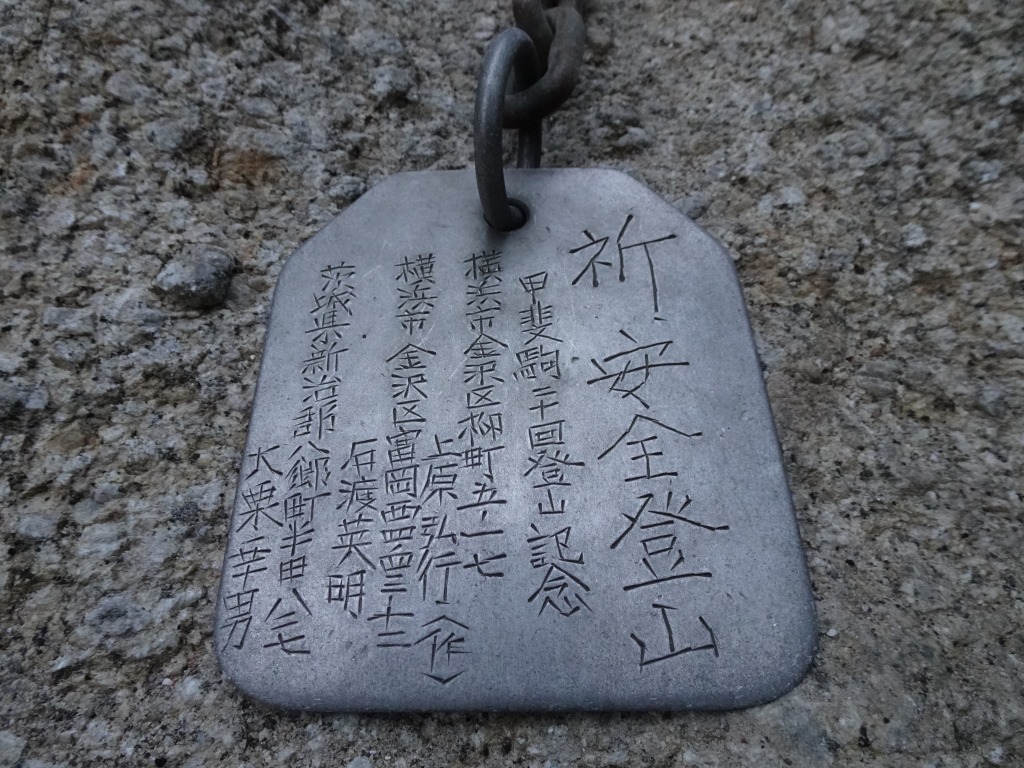 祈安全登山
甲斐駒二十回登山記念
横浜市金沢区柳町五ー七
上原弘行(作)
横浜市金沢区富岡西四ー三十二
石渡英明
茨城県新治郡八郷町半田八三七
大栗幸男